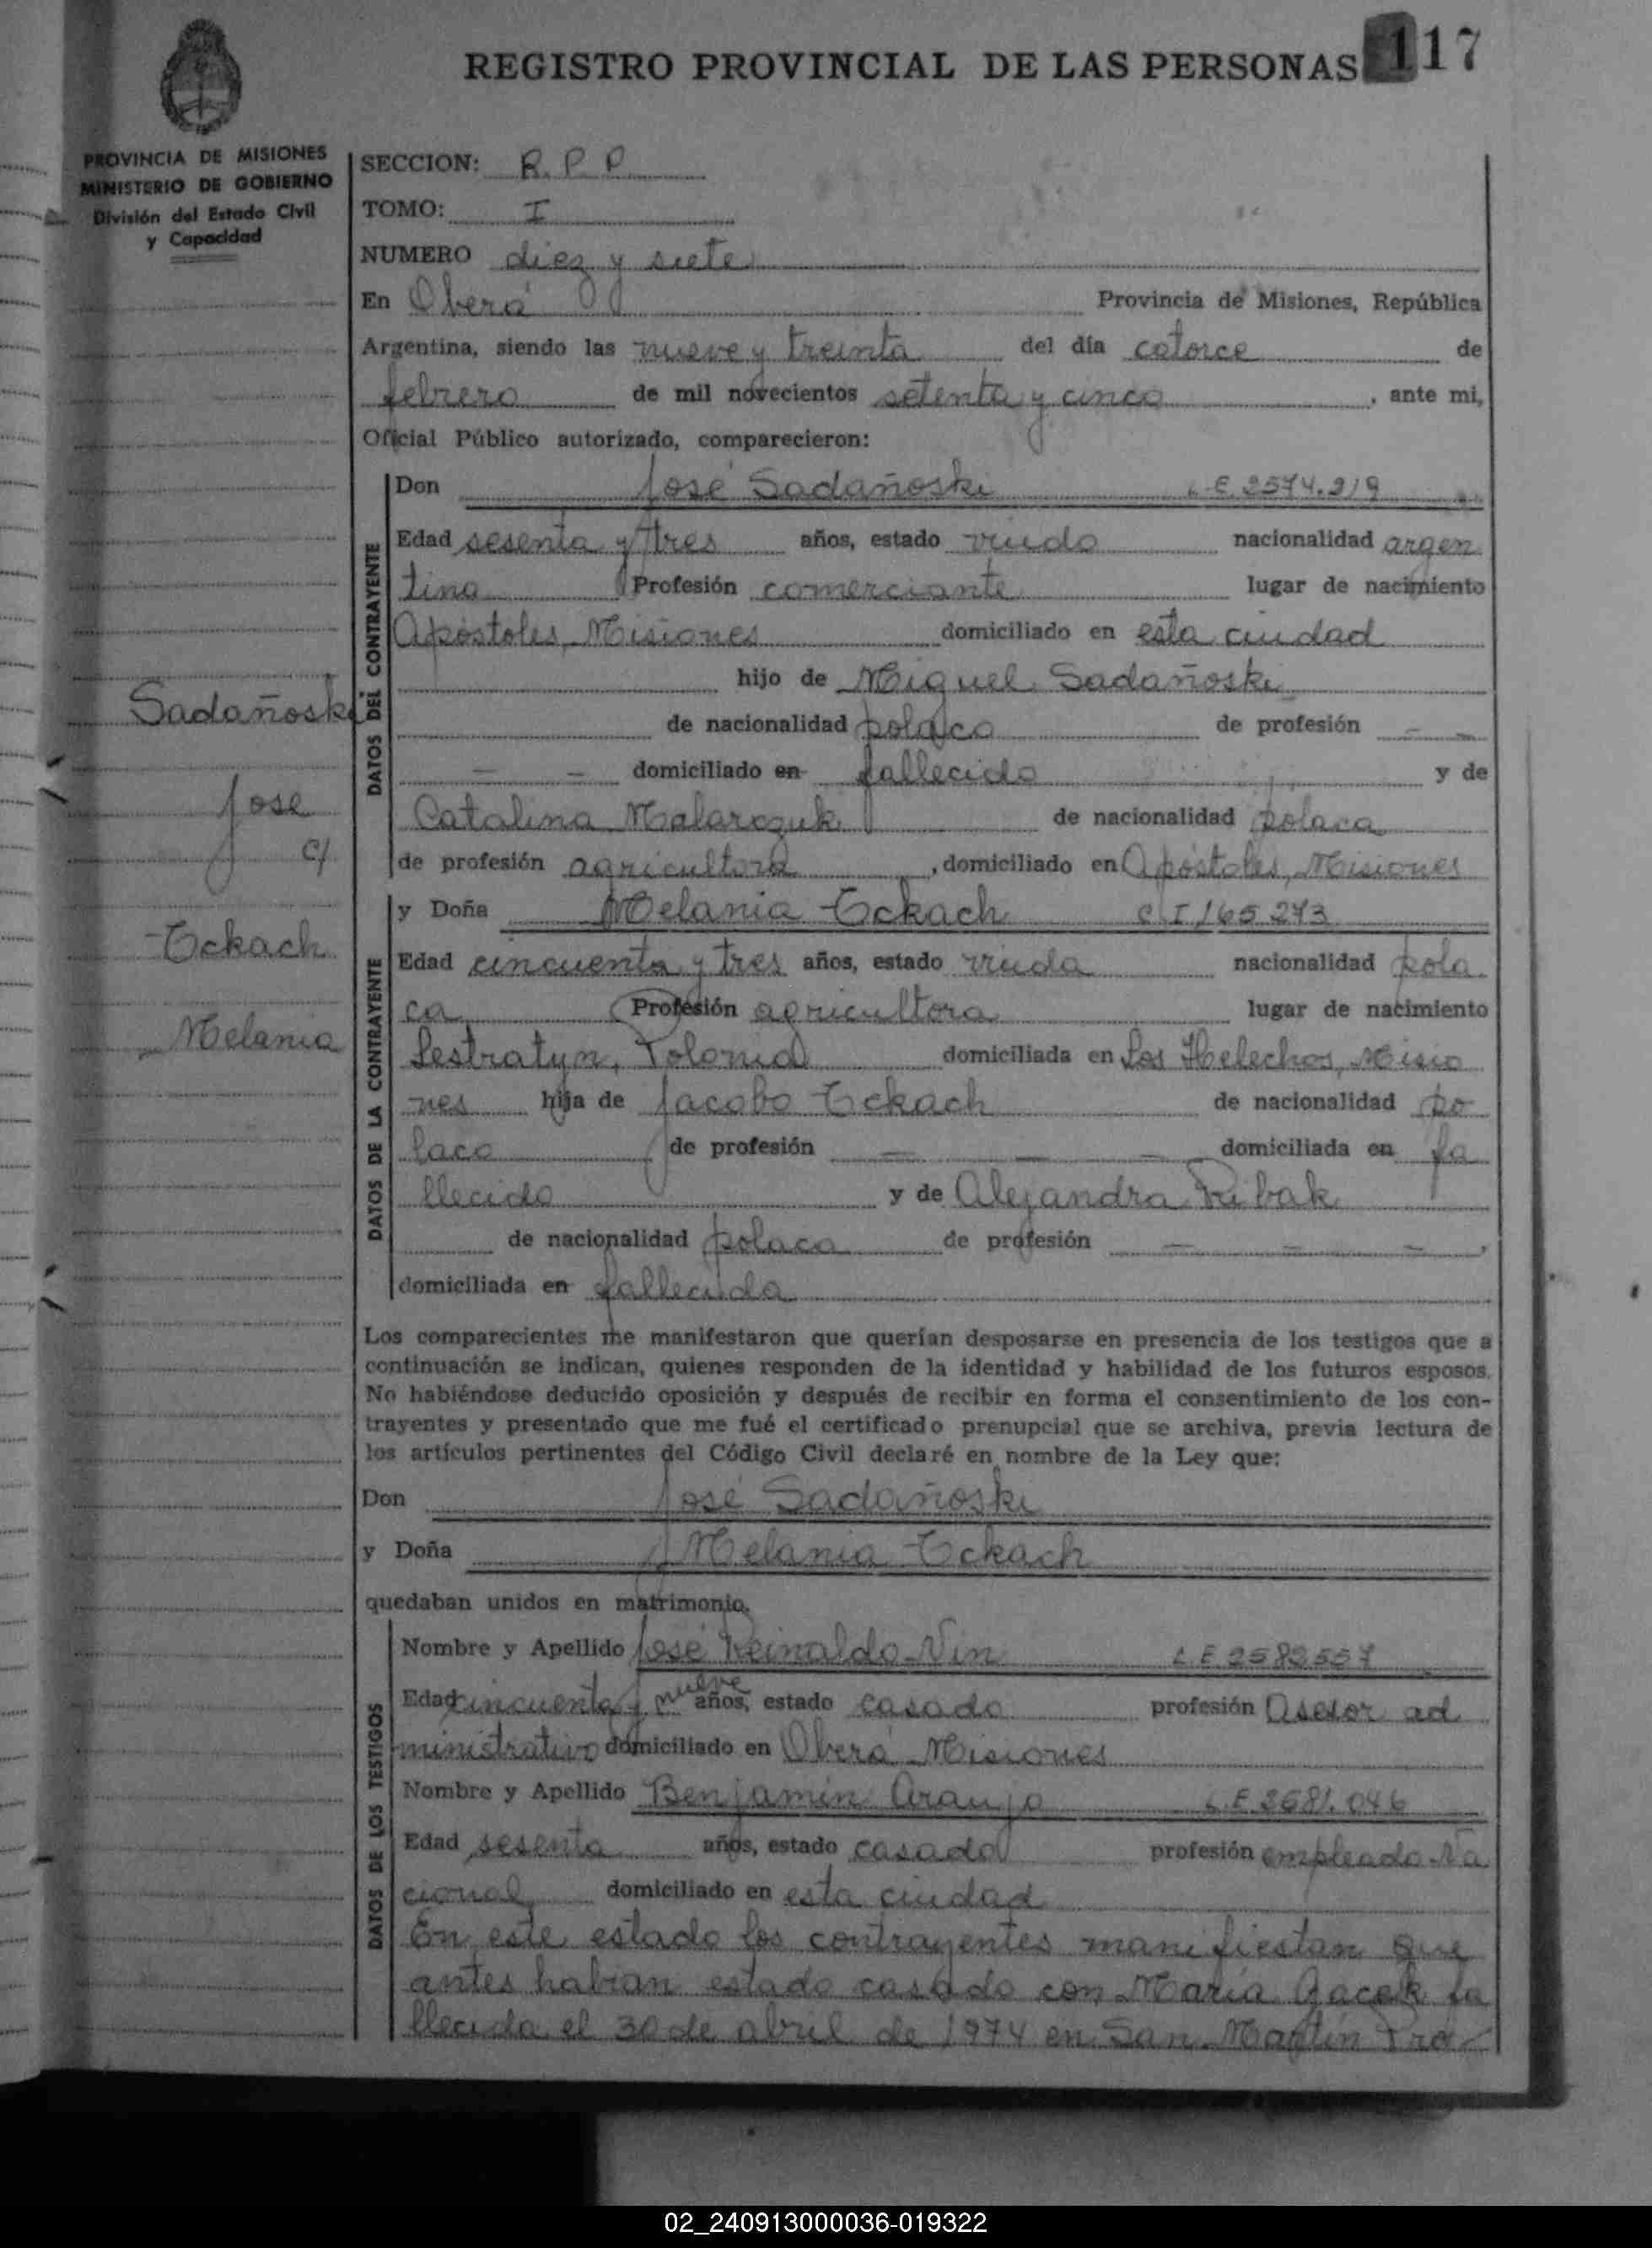 REGISTRO PROVINCIAL DE LAS PERSONAS 117
PROVINCIA DE MISIONES
MINISTERIO DE GOBIERNO
División del Estado Civil
y Capacidad
SECCION: R.P.P
TOMO: I
NUMERO diez y siete
En Oberá Provincia de Misiones, República
Argentina, siendo las nueve y treinta del día catorce de
febrero de mil novecientos setenta y cinco, ante mi,
Oficial Público autorizado, comparecieron:
DATOS DEL CONTRAYENTE
Don José Sadañoski L.E. 2574.219
Edad sesenta y tres años, estado viudo nacionalidad argen
tina Profesión comerciante lugar de nacimiento
Apóstoles, Misiones domiciliado en esta ciudad
hijo de Miguel Sadañoski
de nacionalidad polaco de profesión – –
– – domiciliado en fallecido y de
Catalina Malarczuk de nacionalidad polaca
de profesión agricultora, domiciliado en Apóstoles, Misiones
Sadañoski
José
c/
Tckach
Melania
DATOS DE LA CONTRAYENTE
y Doña Melania Tckach C.I 165.273
Edad cincuenta y tres años, estado viuda nacionalidad pola
ca Profesión agricultora lugar de nacimiento
Sestratyn, Polonia domiciliada en Los Helechos, Misio
nes hija de Jacobo Tckach de nacionalidad po
laco de profesión – – – domiciliada en fa
llecido y de Alejandra Ribak
de nacionalidad polaca de profesión – – –,
domiciliada en fallecida
Los comparecientes me manifestaron que querían desposarse en presencia de los testigos que a
continuación se indican, quienes responden de la identidad y habilidad de los futuros esposos.
No habiéndose deducido oposición y después de recibir en forma el consentimiento de los con-
trayentes y presentado que me fué el certificado prenupcial que se archiva, previa lectura de
los artículos pertinentes del Código Civil declaré en nombre de la Ley que:
Don José Sadañoski
y Doña Melania Tckach
quedaban unidos en matrimonio.
DATOS DE LOS TESTIGOS
Nombre y Apellido José Reinaldo Nin L.E 2582557
Edad cincuenta y nueve años, estado casado profesión Asesor ad
ministrativo domiciliado en Oberá Misiones
Nombre y Apellido Benjamín Araujo L.E 3681.046
Edad sesenta años, estado casado profesión empleado Na
cional domiciliado en esta ciudad
En este estado los contrayentes manifiestan que
antes habian estado casado con María Gacek fa
llecida el 30 de abril de 1974 en San Martín Pro
02_240913000036-019322